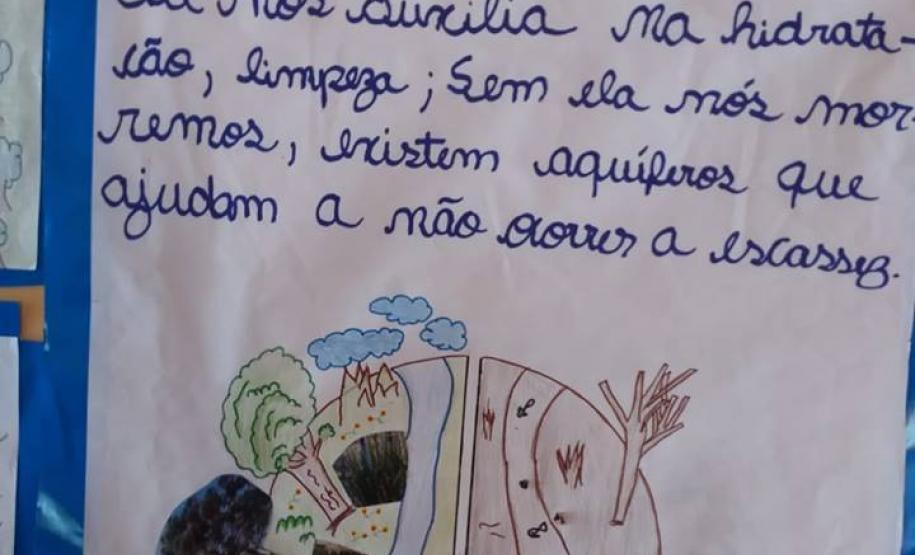 nos auxilia na hidrata-
ção, limpeza; Sem ela nós mor-
remos, existem aquíferos que
ajudam a não ocorrer a escassez.